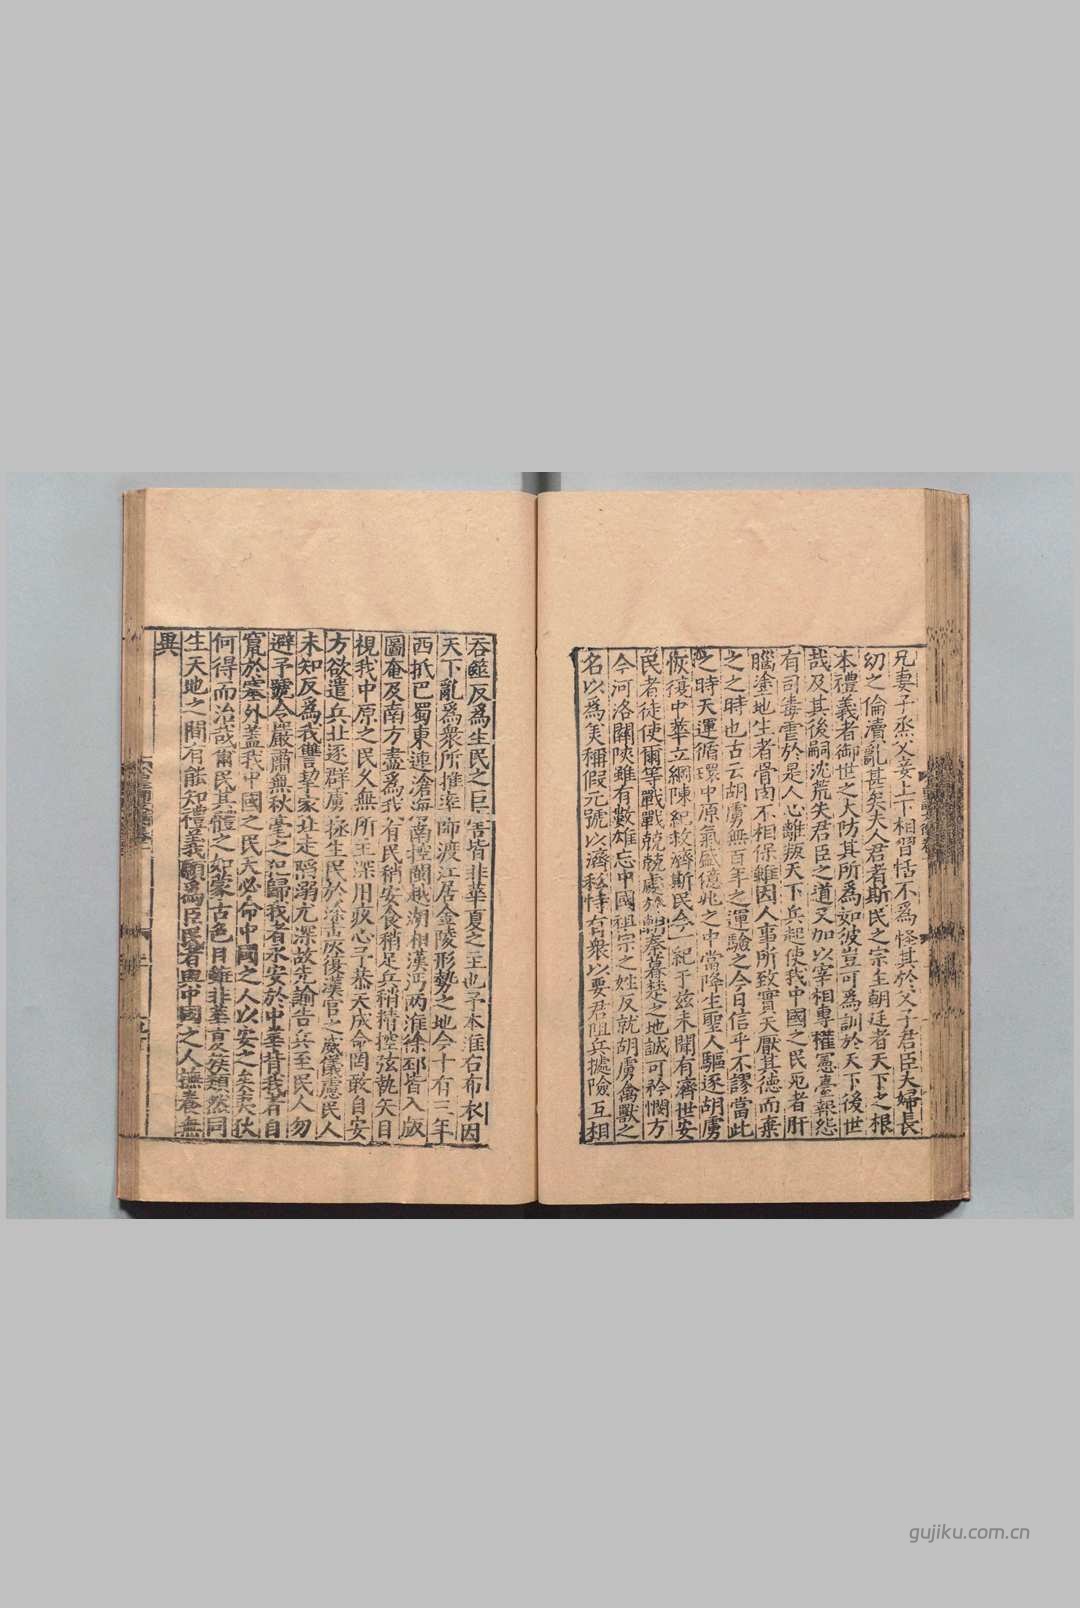 兄妻子烝父妾上下相習恬不為怪其於父子君臣夫婦長
幼之倫瀆亂甚矣夫人君者斯民之宗主朝廷者天下之根
本禮義者御世之大防其所為如彼豈可為訓於天下後世
哉及其後嗣沈荒失君臣之道又加以宰相專權憲臺報怨
有司毒虐於是人心離叛天下兵起使我中國之民死者肝
腦塗地生者骨肉不相保雖因人事所致實天厭其德而棄
之之時也古云胡虜無百年之運驗之今日信乎不謬當此
之時天運循環中原氣盛億兆之中當降生聖人驅逐胡虜
恢復中華立綱陳紀救濟斯民今一紀于茲未聞有濟世安
民者徒使爾等戰戰兢兢處於朝秦暮楚之地誠可矜憫方
今河洛關陝雖有數雄忘中國祖宗之姓反就胡虜禽獸之
名以為美稱假元號以濟私恃有眾以要君阻兵據險互相
吞噬反為生民之巨害皆非華夏之主也予本淮右布衣因
天下亂為眾所推率師渡江居金陵形勢之地今十有三年
西抵巴蜀東連滄海南控閩越湖相漢沔兩淮徐邳皆入版
圖奄及南方盡為我有民稍安食稍足兵稍精控弦執矢目
視我中原之民久無所主深用疚心予恭天成命罔敢自安
方欲遣兵北逐群虜拯生民於塗炭復漢官之威儀慮民人
未知反為我讐挈家北走陷溺尤深故先諭告兵至民人勿
避予號令嚴肅無秋毫之犯歸我者永安於中華背我者自
竄於塞外蓋我中國之民天必命中國之人以安之矣夷狄
何得而治哉爾民其體之如蒙古色目雖非華夏族類然同
生天地之間有能知禮義願為臣民者與中國之人撫養無
異
gujiku.com.cn